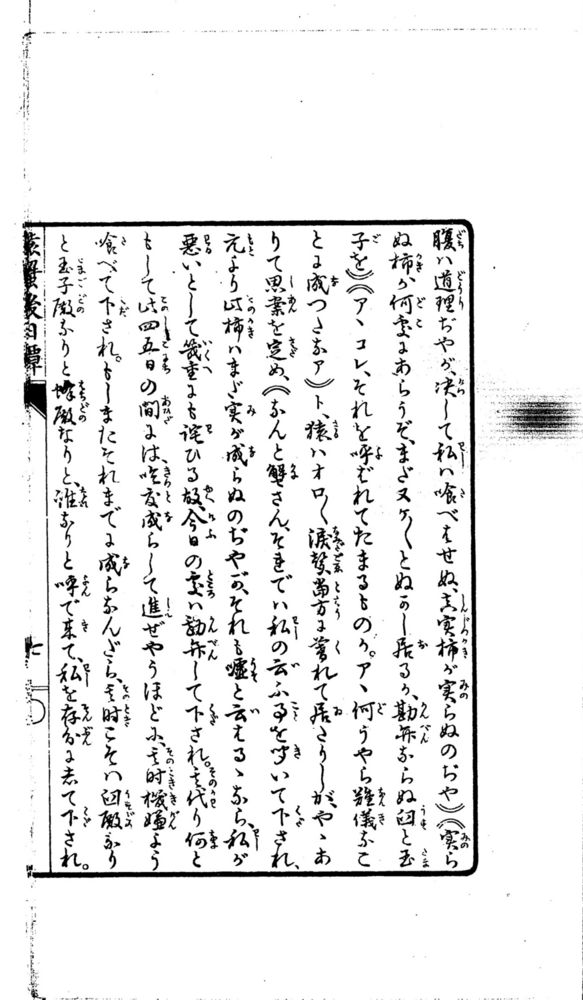 腹ハ道理ぢやが、决して私ハ喰べはせぬ、真実柿が実らぬのぢや》《実ら
ぬ柿が何處にあらうぞ、まだヌケ〳〵とぬかし居るか、勘弁ならぬ臼と玉
子を》《アヽコレ、それを呼ばれてたまるものか。アヽ何うやら難儀なこ
とに成つたなア》ト、猿ハオロ〳〵涙聲、當方に暮れて居たりしが、やヽあ
りて思案を定め、《なんと蟹さん、それでハ私の云ふ事を聞いて下され、
元より此柿ハまだ実が成らぬのぢやが、それも嘘と云はるヽなら、私が
悪いとして幾重にも詫ひる故、今日の處ハ勘弁して下され。其代り何と
もして此四五日の間にハ、急度成らして進ぜやうほどに、其時機嫌よう
喰べて下され。もしまたそれまでに成らなんだら、其時こそハ臼殿なり
と玉子殿なりと蜂殿なりと、誰なりと呼で来て、私を存分にして下され。
猿蟹後日譚
七